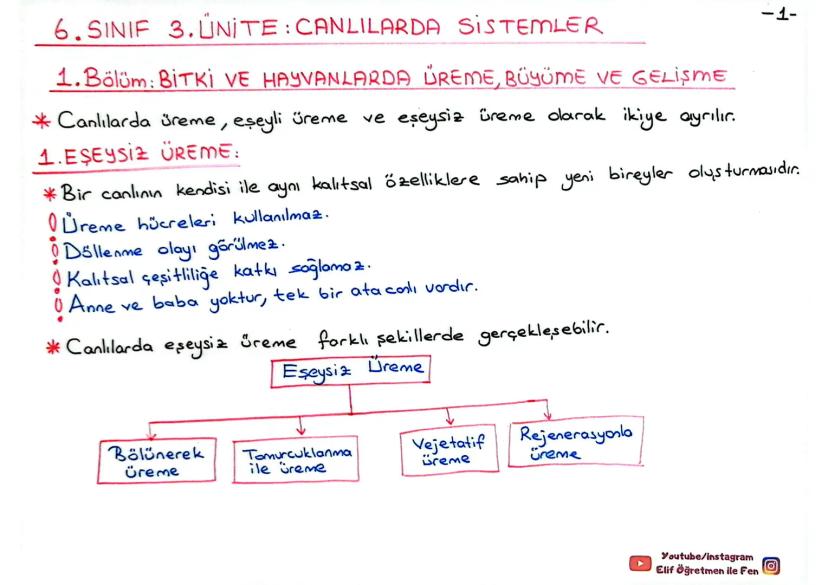 -1-
6.SINIF 3.ÜNİTE:CANLILARDA SİSTEMLER
1.Bölüm:BİTKİ VE HAYVANLARDA ÜREME,BÜYÜME VE GELİŞME
* Canlılarda üreme, eşeyli üreme ve eşeysiz üreme olarak ikiye ayrılır.
1.EŞEYSİZ ÜREME:
* Bir canlının kendisi ile aynı kalıtsal özelliklere sahip yeni bireyler oluşturmasıdır.
! Üreme hücreleri kullanılmaz.
! Döllenme olayı görülmez.
! Kalıtsal çeşitliliğe katkı sağlamaz.
! Anne ve baba yoktur, tek bir ata canlı vardır.
* Canlılarda eşeysiz üreme farklı şekillerde gerçekleşebilir.
Eşeysiz Üreme
Bölünerek
üreme
Tomurcuklanma
ile üreme
Vejetatif
üreme
Rejenerasyonla
üreme
Youtube/instagram
Elif Öğretmen ile Fen